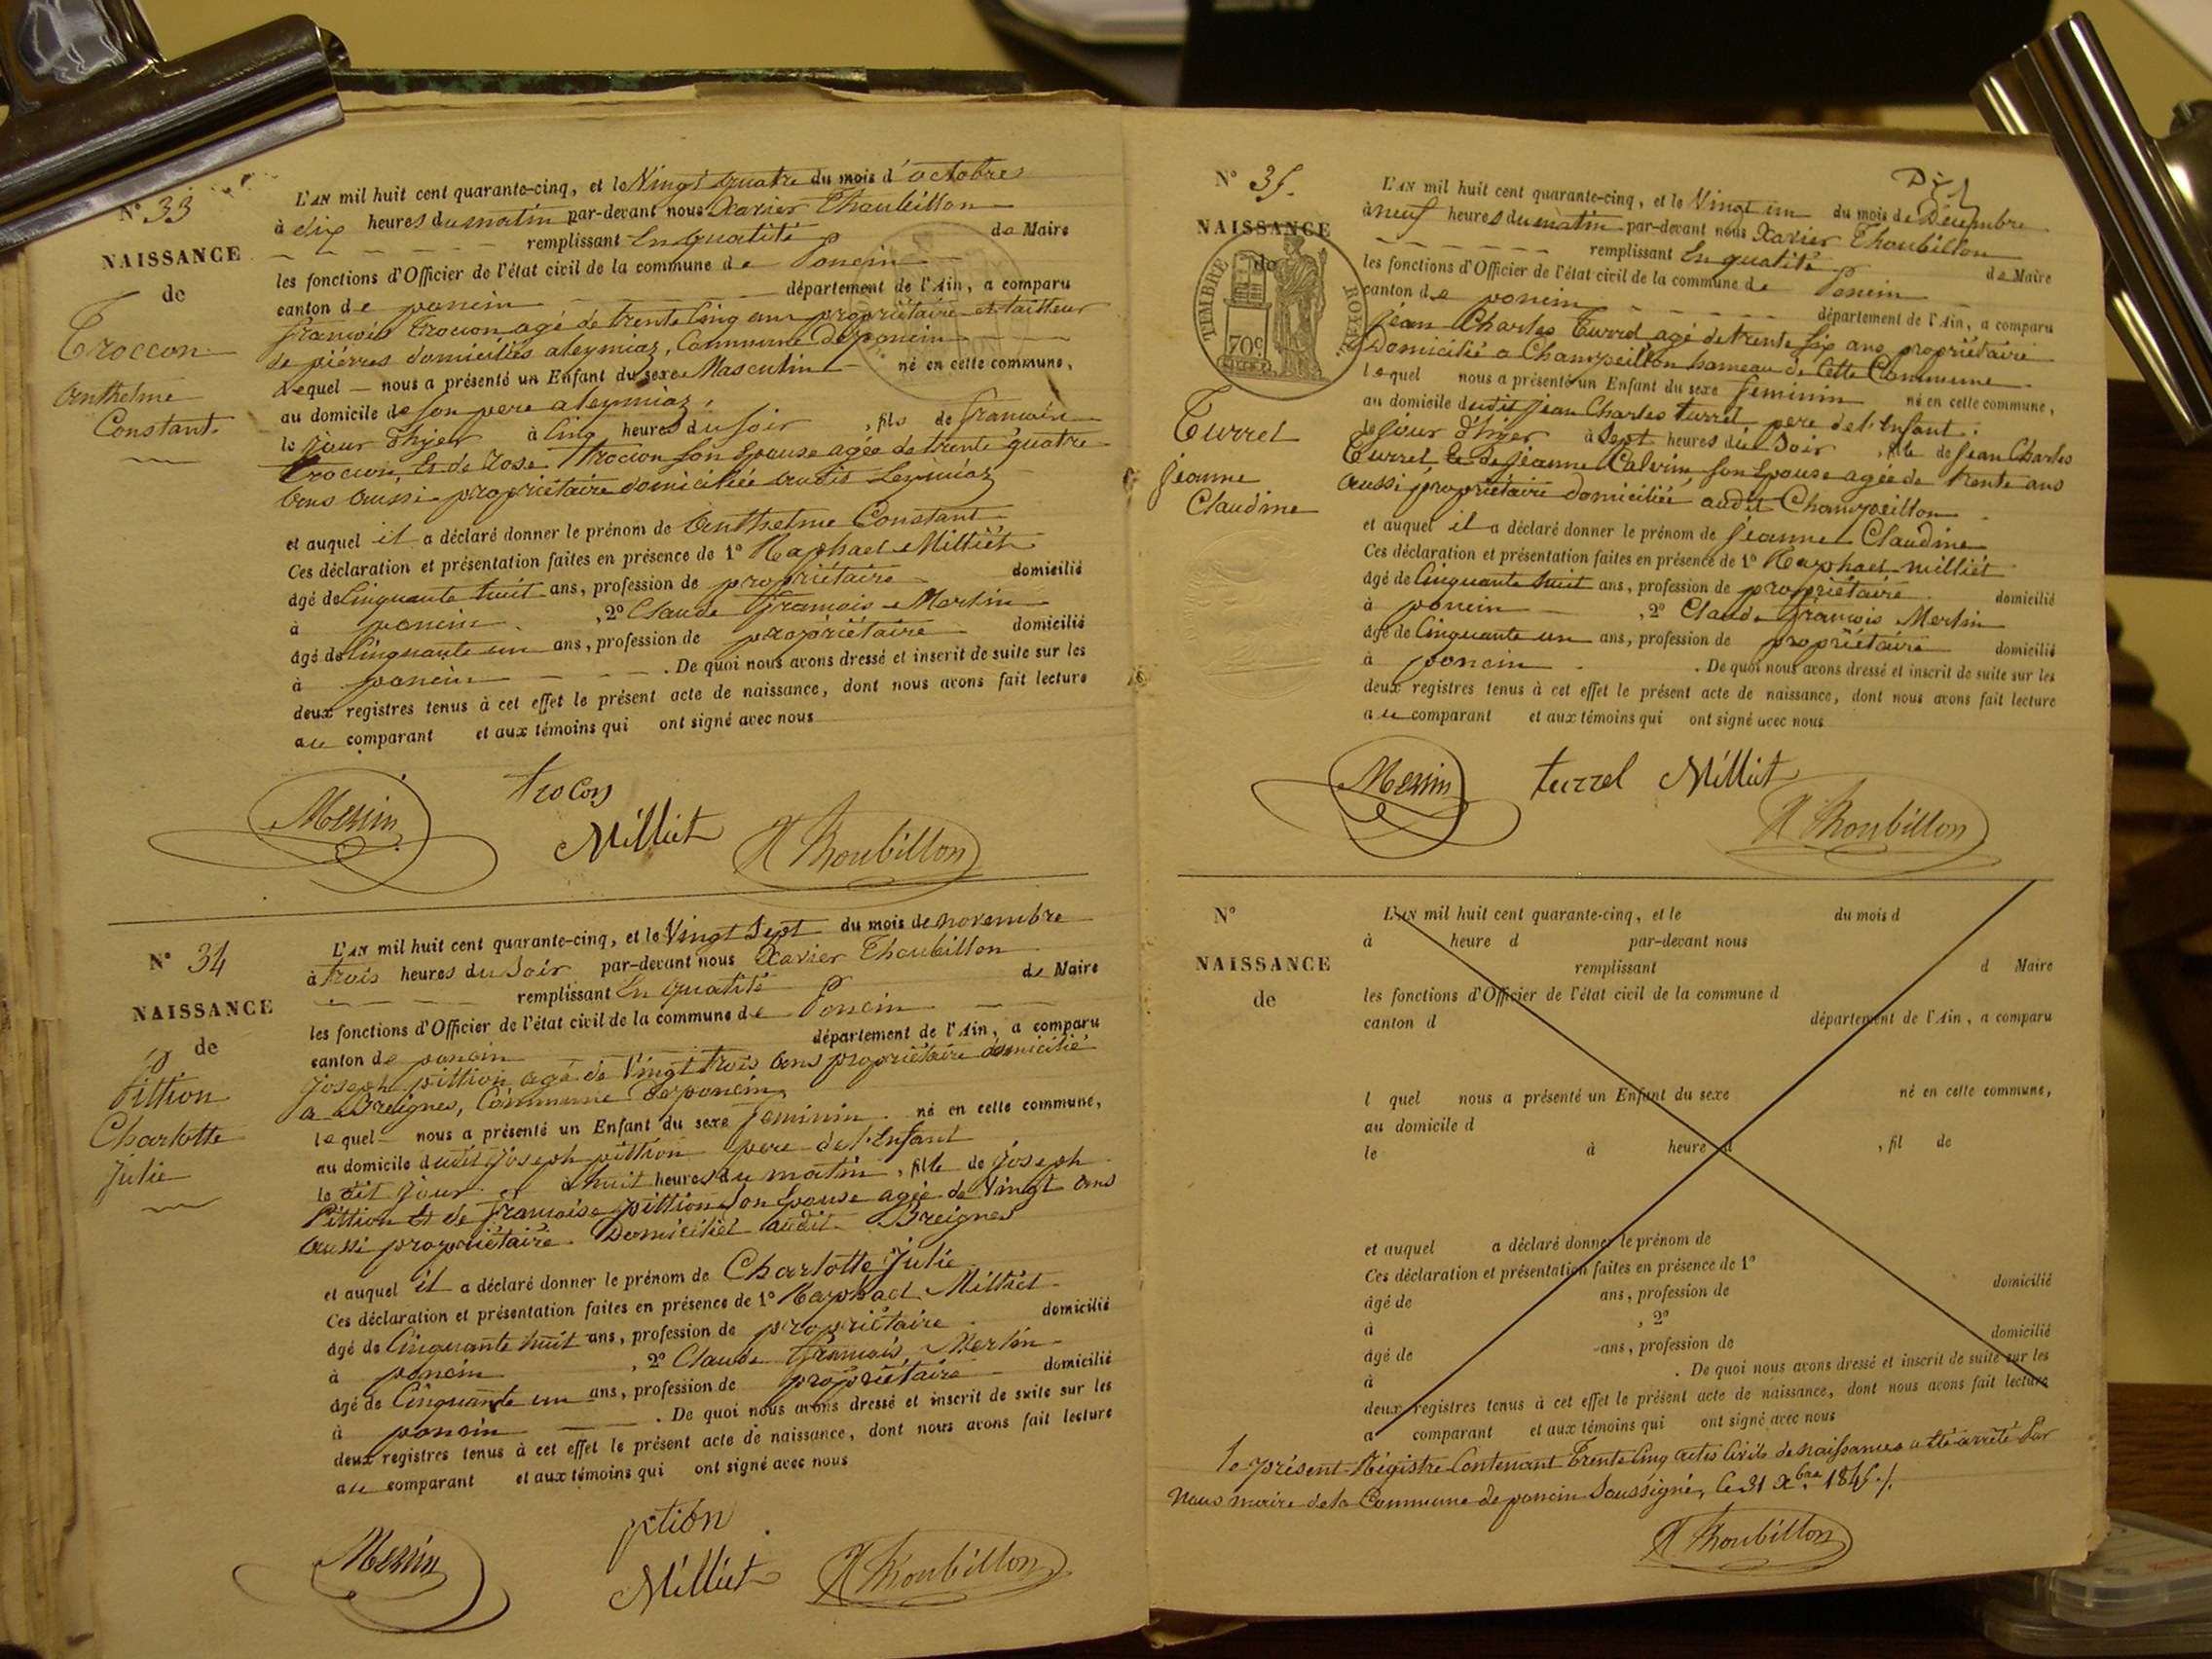 N° 33
NAISSANCE
de
Troccon
Anthelme
Constant.
L'AN mil huit cent quarante-cinq, et le Vingt quatre du mois d'octobre
à dix heures du matin par-devant nous Xavier Thoubillon
remplissant En qualité de Maire
les fonctions d'Officier de l'état civil de la commune de Poncin
canton de poncin département de l'Ain, a comparu
françois trocon agé de trente cinq ans propriétaire et tailleur
de pierres domicilié a leymiaz, Commune de poncin
Lequel nous a présenté un Enfant du sexe Masculin né en cette commune,
au domicile de son pere a leymiaz,
le jour d'hjer à Cinq heures du soir, fils de françois
trocon, Et de Rose Trocon son Epouse agée de trente quatre
ans aussi propriétaire domiciliée audit Leymiaz
et auquel il a déclaré donner le prénom de Anthelme Constant
Ces déclaration et présentation faites en présence de 1° Raphael Milliet
âgé de Cinquante huit ans, profession de propriétaire domicilié
à poncin, 2° Claude François Merlin
âgé de Cinquante un ans, profession de propriétaire domicilié
à poncin. De quoi nous avons dressé et inscrit de suite sur les
deux registres tenus à cet effet le présent acte de naissance, dont nous avons fait lecture
au comparant et aux témoins qui ont signé avec nous
Merlin trocon
Milliet X Thoubillon
N° 34
NAISSANCE
de
Pittion
Charlotte
Julie
L'AN mil huit cent quarante-cinq, et le Vingt Sept du mois de novembre
à trois heures du Soir par-devant nous Xavier Thoubillon
remplissant En qualité de Maire
les fonctions d'Officier de l'état civil de la commune de Poncin
canton de poncin département de l'Ain, a comparu
Joseph pittion agé de Vingt trois ans propriétaire domicilié
a Breignes, Commune de poncin,
lequel nous a présenté un Enfant du sexe feminin né en cette commune,
au domicile dudit Joseph pittion pere de l'Enfant
le dit jour à huit heures du matin, fille de Joseph
Pittion Et de françoise pittion Son Epouse agée de Vingt ans
aussi propriétaire Domiciliée audit Breignes
et auquel il a déclaré donner le prénom de Charlotte Julie
Ces déclaration et présentation faites en présence de 1° Raphael Milliet
âgé de Cinquante huit ans, profession de propriétaire domicilié
à poncin, 2° Claude François Merlin
âgé de Cinquante un ans, profession de propriétaire domicilié
à poncin. De quoi nous avons dressé et inscrit de suite sur les
deux registres tenus à cet effet le présent acte de naissance, dont nous avons fait lecture
au comparant et aux témoins qui ont signé avec nous
Merlin ption
Milliet X Thoubillon
N° 35.
NAISSANCE
de
TIMBRE ROYAL
70c
Turrel
Jeanne
Claudine
L'AN mil huit cent quarante-cinq, et le Vingt un du mois de Décembre
à neuf heures du matin par-devant nous Xavier Thoubillon
remplissant En qualité de Maire
les fonctions d'Officier de l'état civil de la commune de Poncin
canton de poncin département de l'Ain, a comparu
Jean Charles Turrel agé de trente six ans propriétaire
Domicilié a Champeillon hameau de Cette Commune
lequel nous a présenté un Enfant du sexe feminin né en cette commune,
au domicile dudit Jean Charles turrel pere de l'Enfant.
le jour d'hjer à Sept heures du Soir, fille de Jean Charles
Turrel, Et de Jeanne Calvin son Epouse agée de trente ans
aussi propriétaire domiciliée audit Champeillon
et auquel il a déclaré donner le prénom de Jeanne Claudine
Ces déclaration et présentation faites en présence de 1° Raphael Milliet
âgé de Cinquante huit ans, profession de propriétaire domicilié
à poncin, 2° Claude François Merlin
âgé de Cinquante un ans, profession de propriétaire domicilié
à poncin. De quoi nous avons dressé et inscrit de suite sur les
deux registres tenus à cet effet le présent acte de naissance, dont nous avons fait lecture
au comparant et aux témoins qui ont signé avec nous
Merlin turrel Milliet
X Thoubillon
N°
NAISSANCE
de
L'AN mil huit cent quarante-cinq, et le du mois d
à heure d par-devant nous
remplissant d Maire
les fonctions d'Officier de l'état civil de la commune d
canton d département de l'Ain, a comparu
l quel nous a présenté un Enfant du sexe né en cette commune,
au domicile d
le à heure d, fil de
et auquel a déclaré donner le prénom de
Ces déclaration et présentation faites en présence de 1°
âgé de ans, profession de domicilié
à, 2°
âgé de ans, profession de domicilié
à. De quoi nous avons dressé et inscrit de suite sur les
deux registres tenus à cet effet le présent acte de naissance, dont nous avons fait lecture
a comparant et aux témoins qui ont signé avec nous
le présent Régistre Contenant Trente Cinq actes Civils de naissances a été arrêté Par
Nous maire de la Commune de poncin Soussigné, le 31 Xbre 1845./.
X Thoubillon